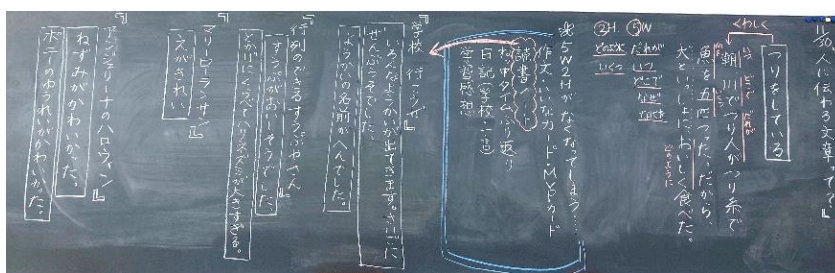 11/30 人に伝わる文章って?
つりをしている
くわしく
いつ どこで だれが
朝、川でつり人がつり糸で
魚を五匹つった。だから、
犬といっしょにおいしく食べた。
どのように
⑤W
だれが
いつ
どこで
なぜ
なにを
②H
どのように
いくつ
※5W2Hがなくなってしまう…
作文 いいなカード・MVPカード
読書ノート
ねっ中タイムふり返り
日記(学校・家)
学習感想
『学校 行こうぜ』
いろんなようかいが出てきます。さいごに
ぜんぶうそでした。
ようかいの名前がへんでした。
『行列のできるすうぷやさん』
すうぷがおいしそうでした。
とかげにくらべてハリネズミが大きすぎる。
『マリー・ローランサン』
えがきれい
『アンジェリーナのハロウィン』
ねずみがかわいかった。
ポテのゆうれいがかわいかった。